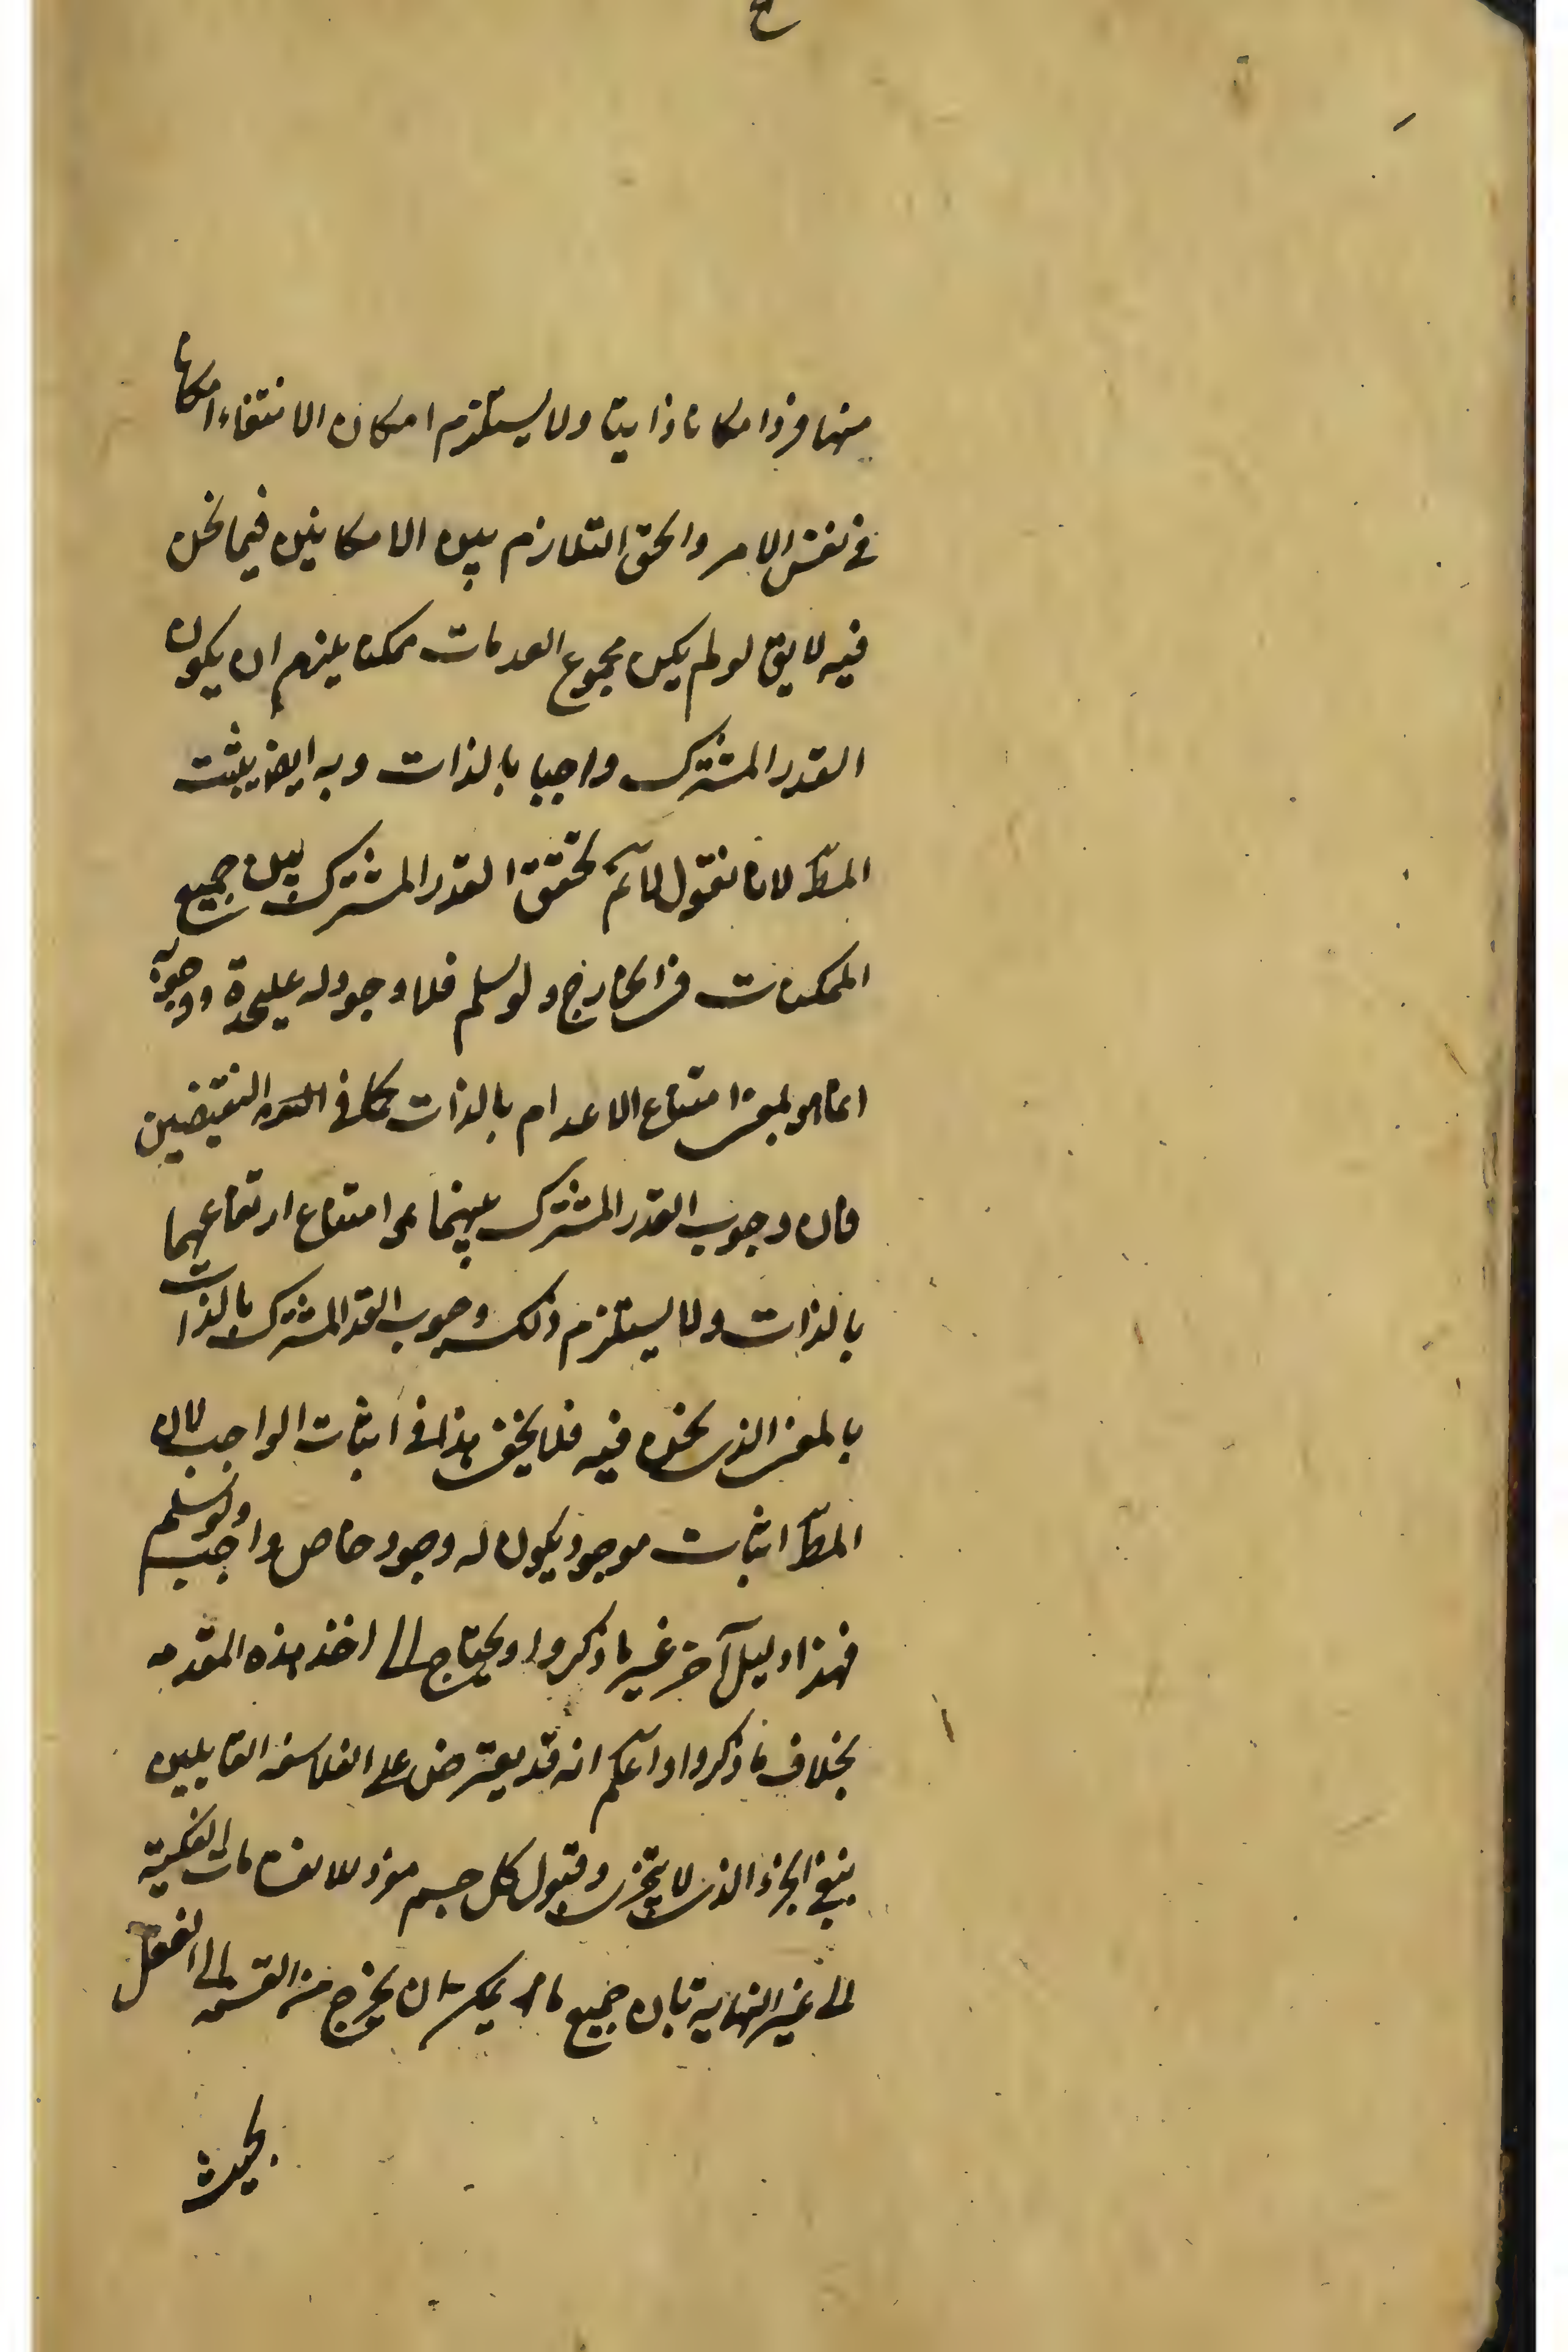 منها فردا امكانا ذاتيا ولا يستلزم امكان الانتفاء امكانا
في نفس الامر والحق التلازم بين الامكانين فيما نحن
فيه لا يق لو لم يكن مجموع العدمات ممكنا يلزم ان يكون
القدر المشترك واجبا بالذات وبه ايض يثبت
المط لانا نقول لانم تحقق القدر المشترك بين جميع
الممكنات في الخارج ولو سلم فلا وجود له عليحدة ووجوبه
انما هو بمعنى امتناع الاعدام بالذات كما في النقيضين
فان وجوب القدر المشترك بينهما هو امتناع ارتفاعهما
بالذات ولا يستلزم ذلك وجوب القدر المشترك بالذات
بالمعنى الذي نحن فيه فلا يخفى هذا في اثبات الواجب لان
المط اثبات موجود يكون له وجود خاص واجب ولو سلم
فهذا دليل آخر غير ما ذكروا ويحتاج الى اخذ هذه المقدمه
بخلاف ما ذكروا واعلم انه قد يعترض على الفلاسفه القايلين
بنفي الجزء الذي لا يتجزى وقبول كل جسم مفرد للانقسامات الفكية
الى غير النهاية بان جميع ما يمكن ان يخرج من القسمه الى الفعل
بحيث